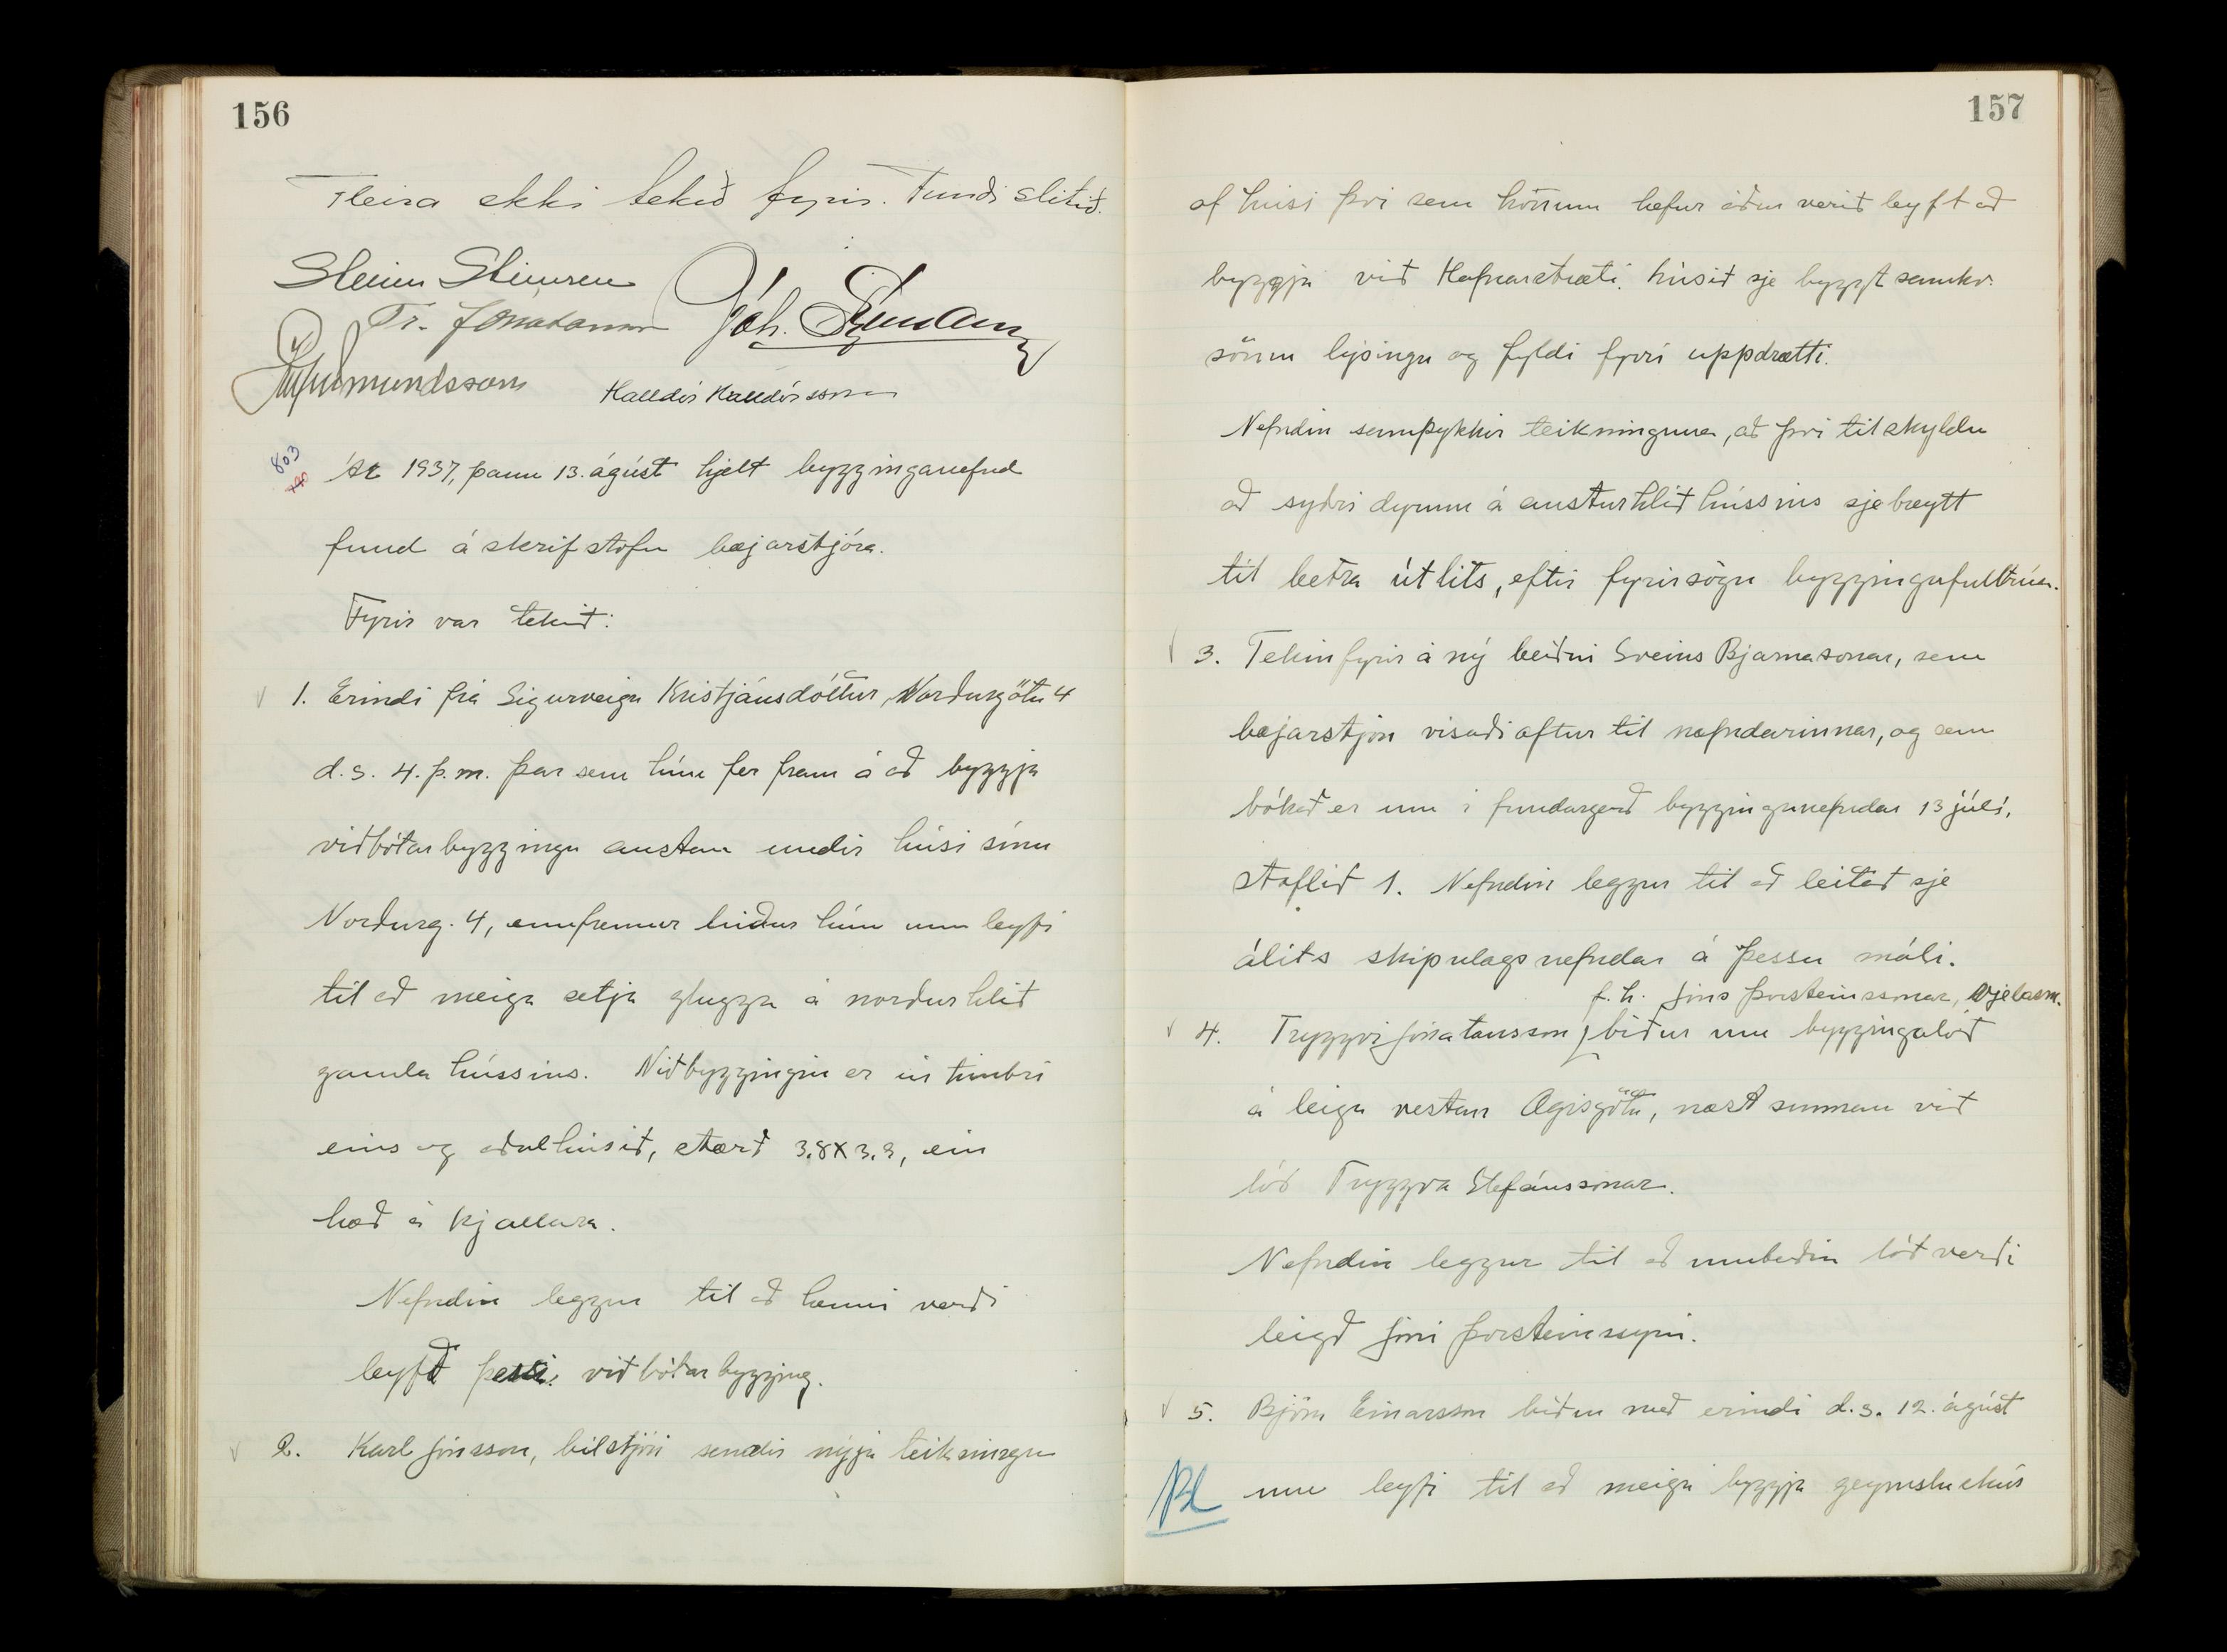 156
Fleira ekki tekið fyrir. Fundi slitið.
Steinn Steinsen
Tr. Jónatansson Jóh. Sigurðsson
Guðmundsson Halldór Halldórsson
803
Ár 1937, þann 13. ágúst hjelt bygginganefnd
fund á skrifstofu bæjarstjóra.
Fyrir var tekið:
1. Erindi frá Sigurveigu Kristjánsdóttur, Norðurgötu 4
d.s. 4. þ.m. þar sem hún fer fram á að byggja
viðbótarbyggingu austan undir húsi sínu
Norðurg. 4, ennfremur biður hún um leyfi
til að meiga setja glugga á norðurhlið
gamla hússins. Viðbyggingin er úr timbri
eins og aðalhúsið, stærð 3.8x3.3, ein
hæð á kjallara.
Nefndin leggur til að henni verði
leyfð þessi viðbótarbygging.
2. Karl Jónsson, bílstjóri sendir nýja teikningu
157
af húsi því sem honum hefur áður verið leyft að
byggja við Hafnarstræti. Húsið sje byggt samkv.
sömu lýsingu og fyldi fyrri uppdrætti.
Nefndin samþykkir teikninguna, að því tilskyldu
að syðri dyrum á austurhlið hússins sje breytt
til betra útlits, eftir fyrirsögn byggingafulltrúa.
3. Tekin fyrir á ný beiðni Sveins Bjarnasonar, sem
bæjarstjórn vísaði aftur til nefndarinnar, og sem
bókað er um í fundargerð bygginganefndar 13 júlí,
staflið 1. Nefndin leggur til að leitað sje
álits skipulagsnefndar á þessu máli.
f.h. Jóns Þorsteinssonar, vjelasm.
4. Tryggvi Jónatansson biður um byggingalóð
á leigu vestan Ægisgötu, næst sunnan við
lóð Tryggva Stefánssonar.
Nefndin leggur til að umbeðin lóð verði
leigð Jóni Þorsteinssyni.
5. Björn Einarsson biður með erindi d.s. 12. ágúst
um leyfi til að meiga byggja geymsluhús